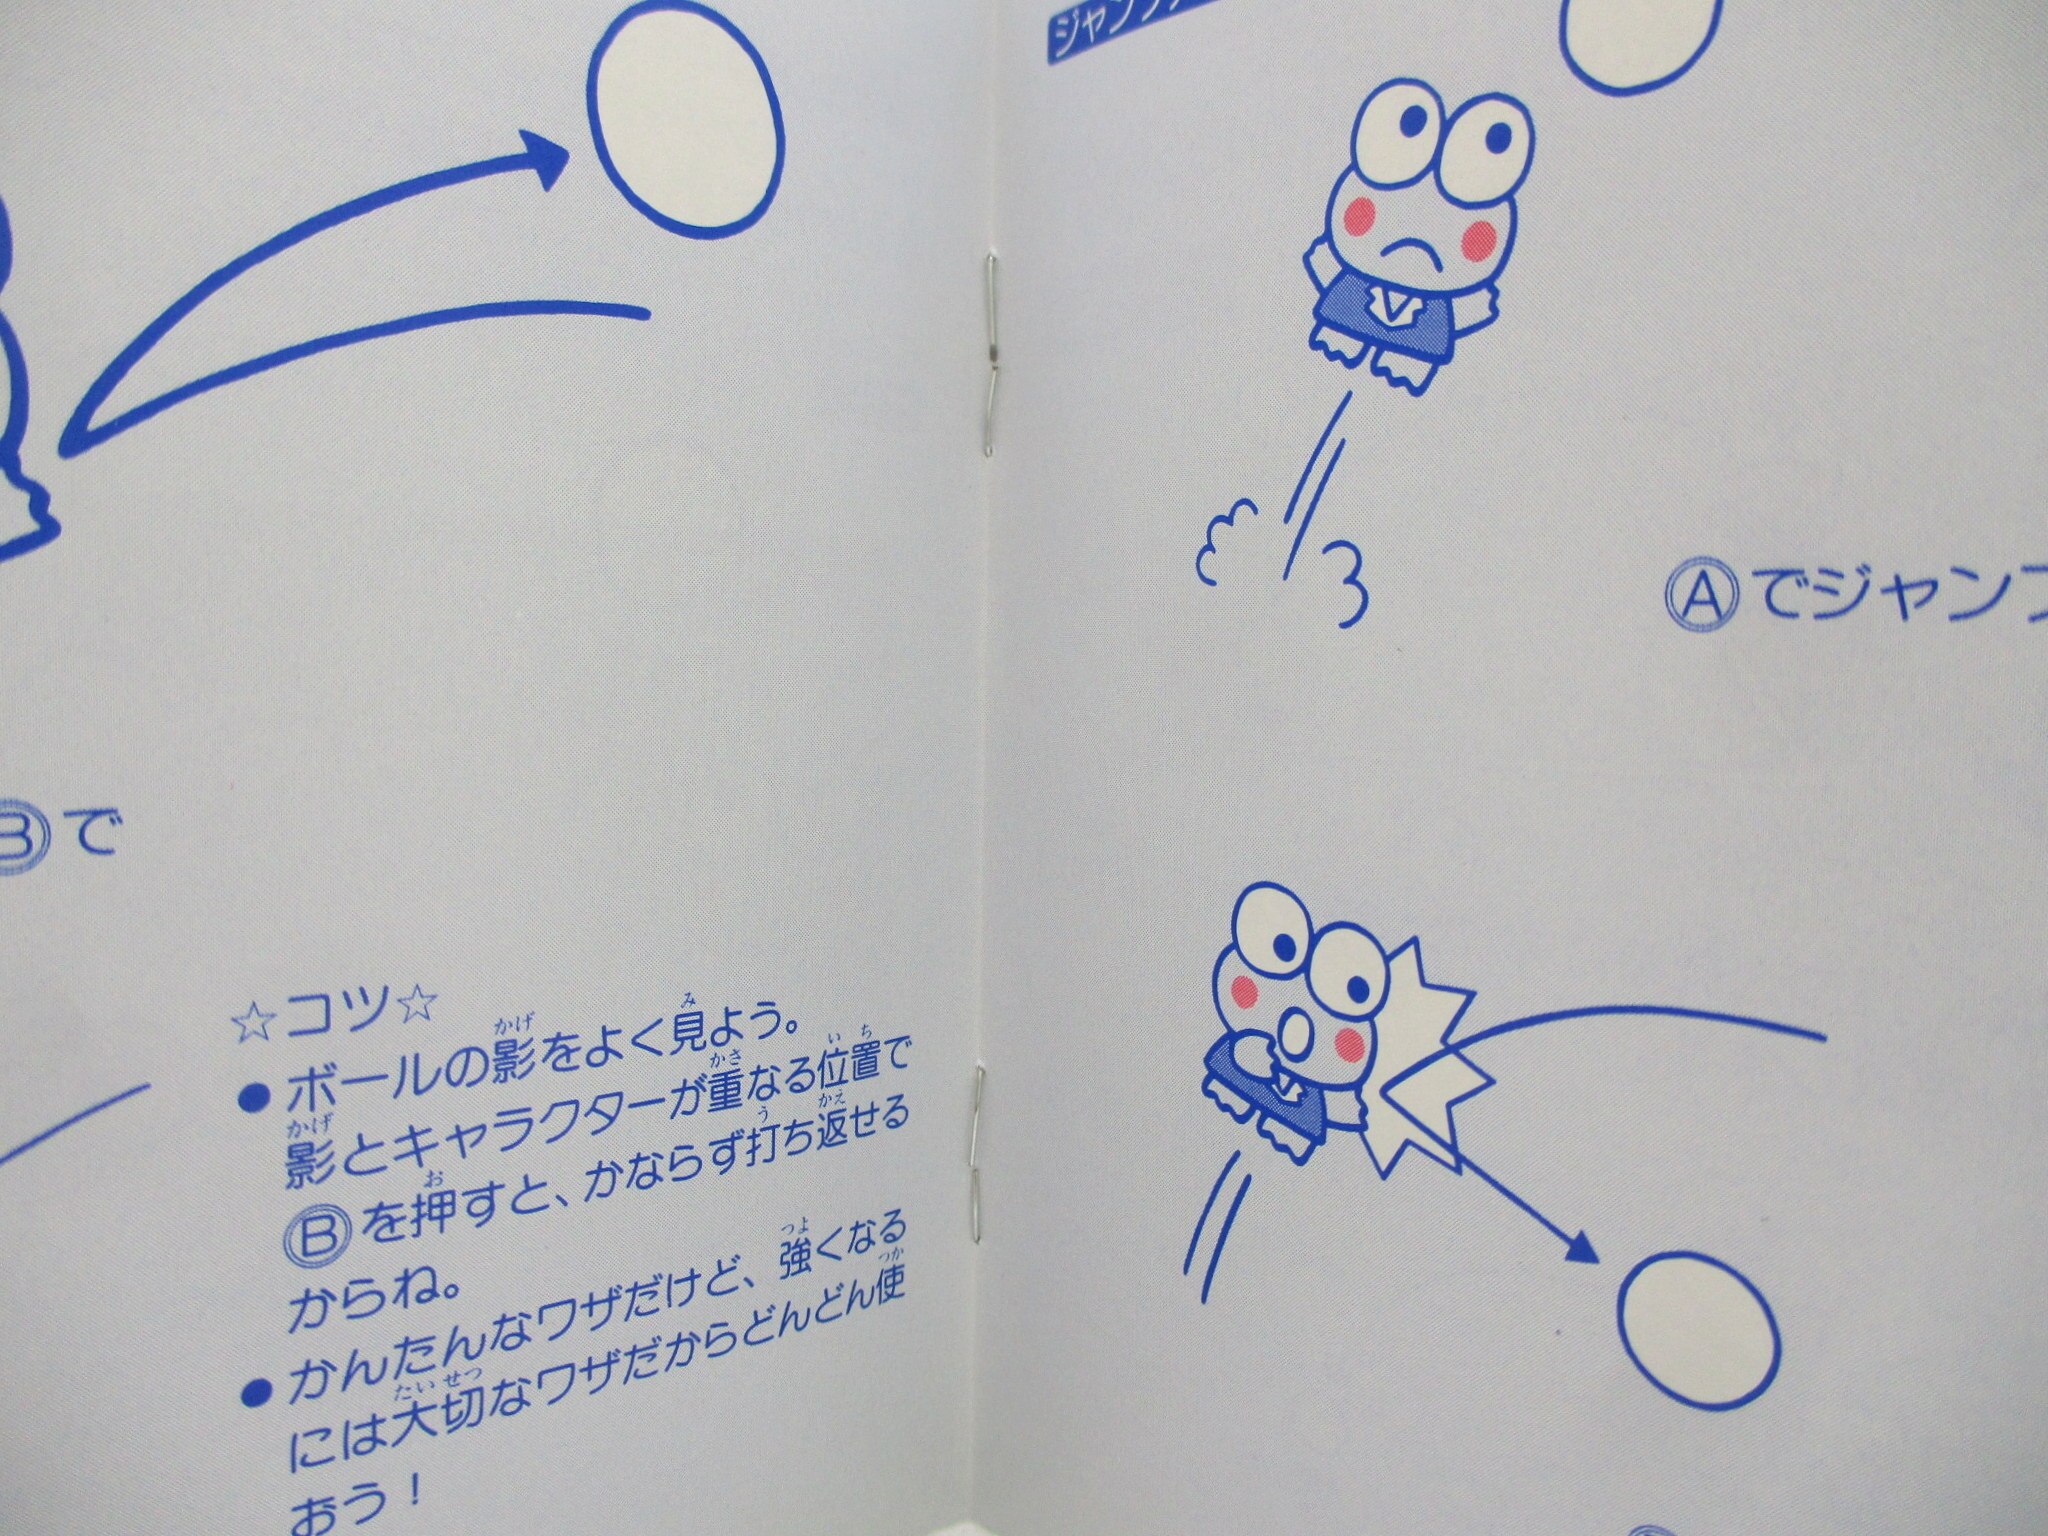 Ⓑで
☆コツ☆
●ボールの影をよく見よう。
影とキャラクターが重なる位置で
Ⓑを押すと、かならず打ち返せる
からね。
●かんたんなワザだけど、強くなる
には大切なワザだからどんどん使
おう！
ジャンプ
Ⓐでジャンプ